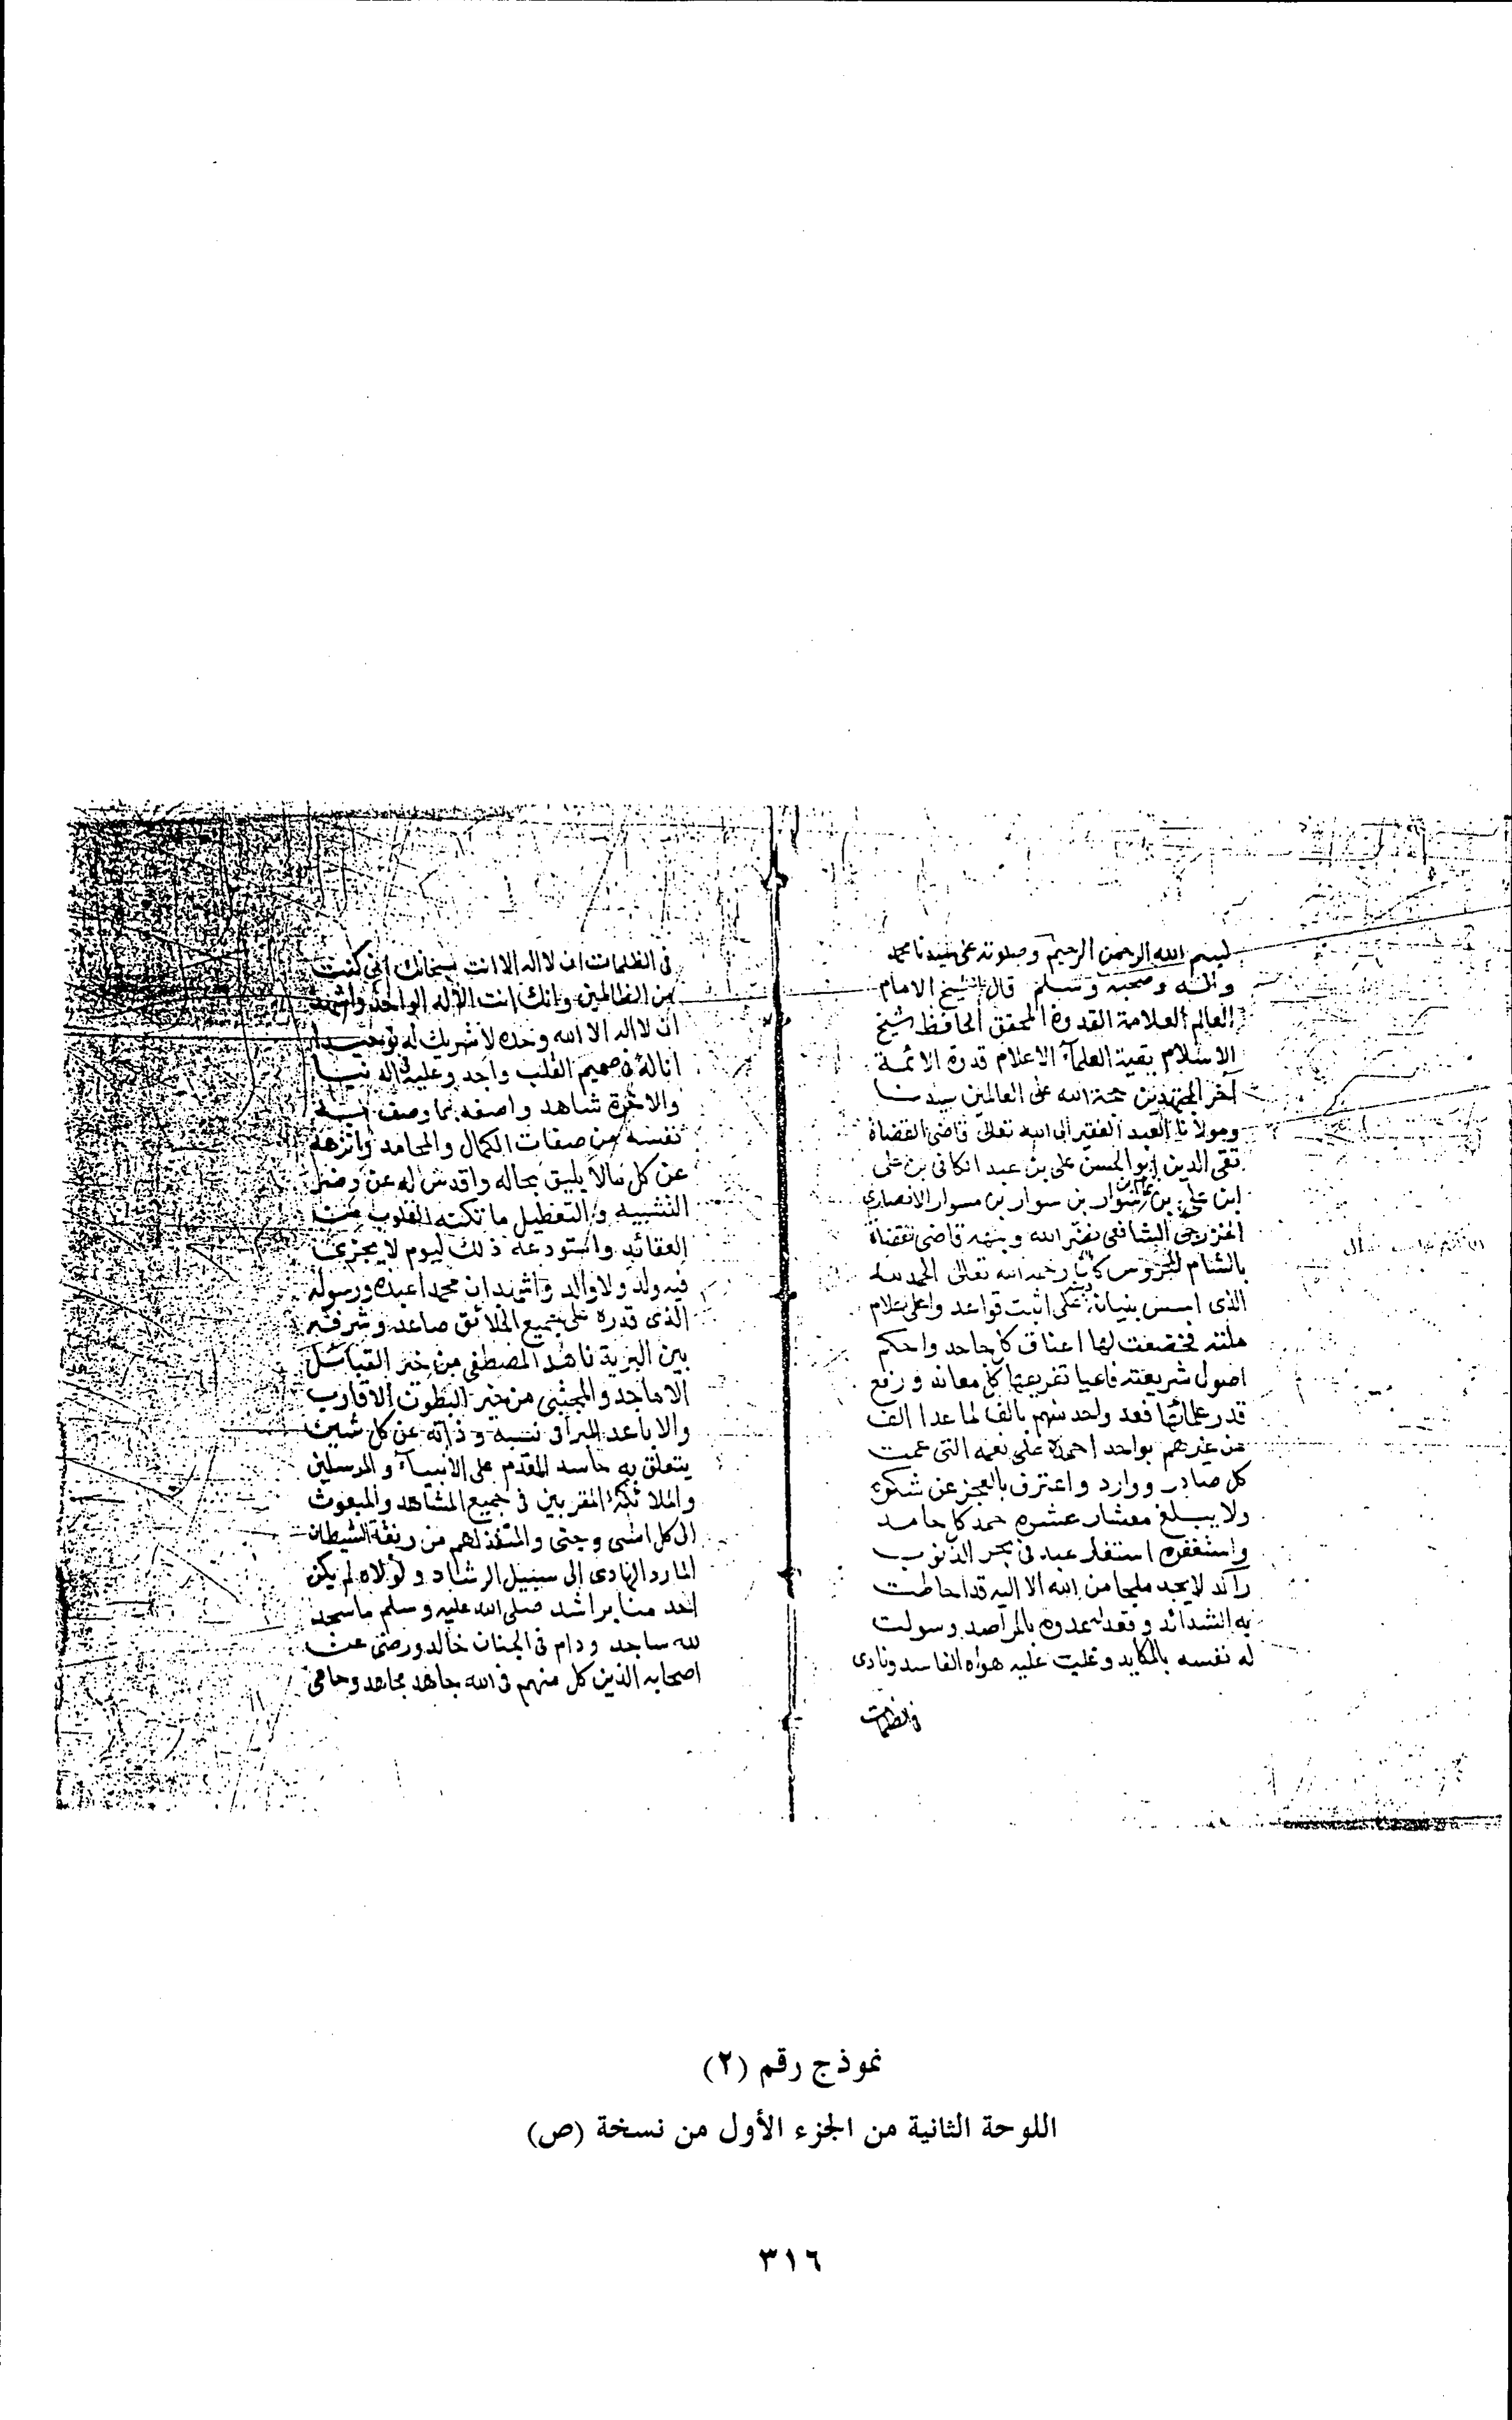 بسم الله الرحمن الرحيم وصلوته على سيدنا محمد
واله وصحبه وسلم قال الشيخ الامام
العالم العلامة القدوة المحقق الحافظ شيخ
الاسلام بقية العلمآء الاعلام قدوة الائمة
آخر المجتهدين حجة الله على العالمين سيدنا
ومولانا العبد الفقير الى الله تعالى قاضى القضاة
تقى الدين ابو الحسن على بن عبد الكافى بن على
ابن على بن تمام بن سوار بن سوار بن مسوار الانصارى
الخزرجى الشافعى قاضى
بالشام المحروس كان رحمه الله تعالى الحمد لله
الذى اسس بنيان دينه على اثبت قواعد واعلى علام
ملته فخضعت لها اعناق كل جاحد واحكم
اصول شريعته فاعيا تفريعها كل معاند ورفع
قدر علمائها فعد واحد منهم بالف لما عدا الف
من غيرهم بواحد احمده على نعمه التى عمت
كل صادر ووارد واعترف بالعجز عن شكره
ولا يبلغ معشار عشره حمد كل حامد
واستغفره استغفار عبد فى بحر الذنوب
راكد لا يجد ملجا من الله الا اليه قد احاطت
به الشدائد وقعد له عدوه بالمراصد وسولت
له نفسه بالمكايد وغلبت عليه هواه الفاسد ونادى
فى الظلمات
فى الظلمات ان لا اله الا انت سبحانك انى كنت
من الظالمين وانك انت الاله الواحد واشهد
ان لا اله الا الله وحده لا شريك له توحيدا
انا له فى صميم القلب واجد وعليه فى الدنيا
والاخرة شاهد واصفه بما وصف به
نفسه من صفات الكمال والمحامد وانزهه
عن كل مالا يليق بجاله واقدس له عن
التشبيه والتعطيل ما تكنه القلوب من
العقائد واستودعه ذلك ليوم لا يجزى
فيه ولد ولا والد واشهد ان محمدا عبده ورسوله
الذى قدره على جميع الخلائق صاعد وشرفه
بين البرية ناهد المصطفى من خير القبائل
الاماجد والمجتبى من خير البطون الاقارب
والاباعد المبرأ فى نسبه وذاته عن كل شين
يتعلق به حاسد المقدم على الانبيآء والمرسلين
والملائكة المقربين فى جميع المشاهد والمبعوث
الى كل انسى وجنى والمنقذ لهم من ربقة الشيطان
المارد الهادى الى سبيل الرشاد ولولاه لم يكن
احد منا براشد صلى الله عليه وسلم ما سجد
لله ساجد ودام فى الجنان خالد ورضى عن
اصحابه الذين كل منهم فى الله جاهد مجاهد وحامى
نموذج رقم (٢)
اللوحة الثانية من الجزء الأول من نسخة (ص)
٣١٦